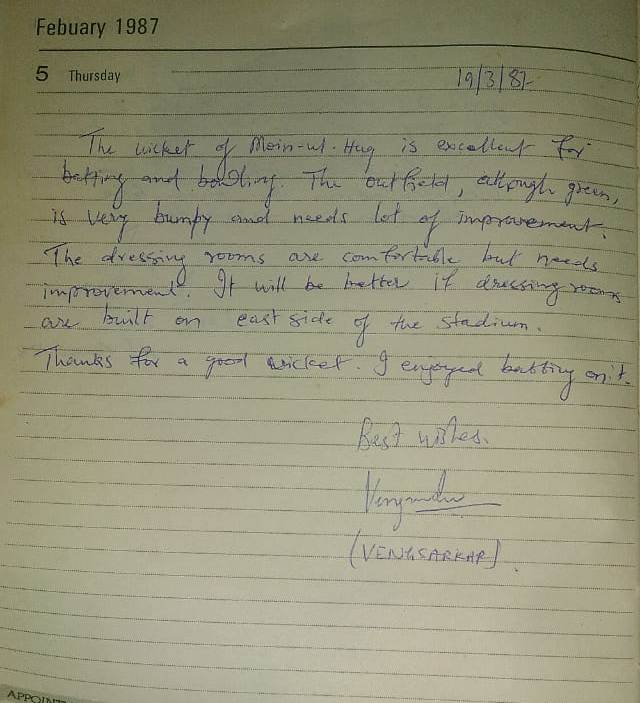 Febuary 1987
5 Thursday
19/3/87
The wicket of Moin-ul-Huq is excellent for
batting and bowling. The outfield, although green,
is very bumpy and needs lot of improvement.
The dressing rooms are comfortable but needs
improvement. It will be better if dressing rooms
are built on east side of the stadium.
Thanks for a good wicket. I enjoyed batting on it.
Best wishes.
(VENGSARKAR)
APPOINT